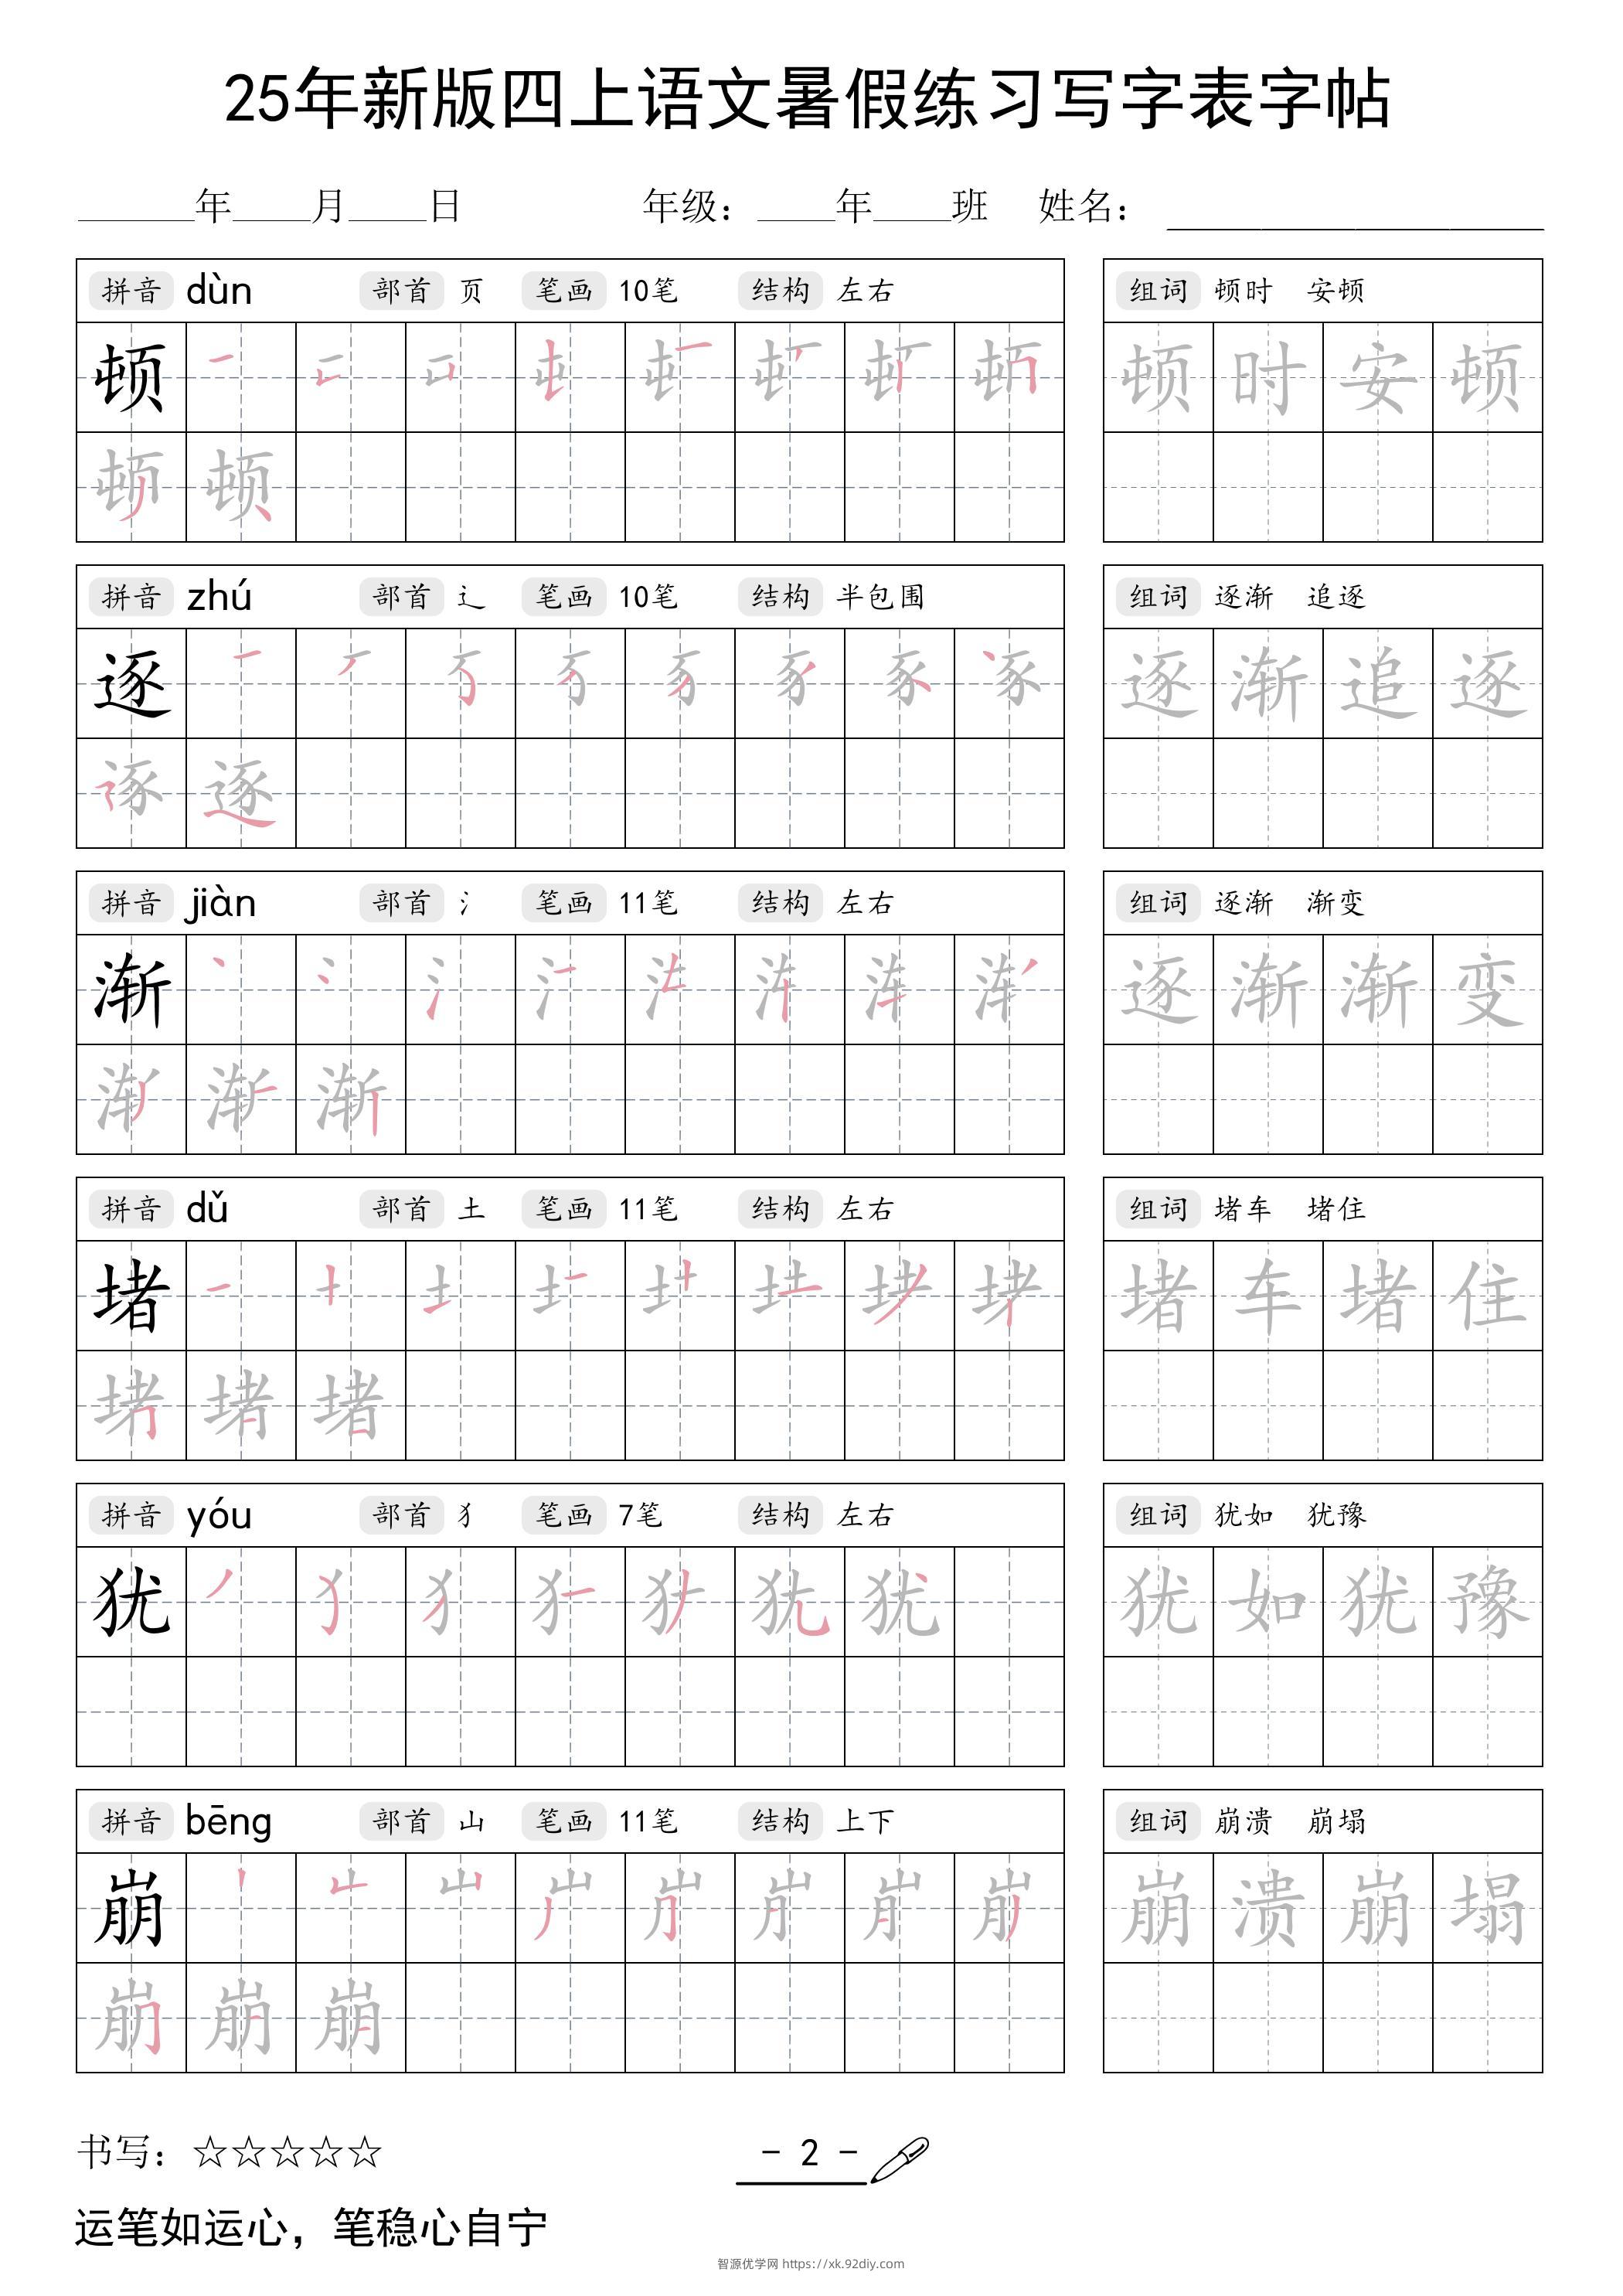 25年新版四上语文暑假练习写字表字帖
______年____月____日 年级：____年____班 姓名：________________
拼音 dùn 部首 页 笔画 10笔 结构 左右 组词 顿时 安顿
顿 顿 时 安 顿
顿 顿
拼音 zhú 部首 辶 笔画 10笔 结构 半包围 组词 逐渐 追逐
逐 逐 渐 追 逐
逐
拼音 jiàn 部首 氵 笔画 11笔 结构 左右 组词 逐渐 渐变
渐 逐 渐 渐 变
渐
拼音 dǔ 部首 土 笔画 11笔 结构 左右 组词 堵车 堵住
堵 堵 车 堵 住
堵
拼音 yóu 部首 犭 笔画 7笔 结构 左右 组词 犹如 犹豫
犹 犹 犹 如 犹 豫
拼音 bēng 部首 山 笔画 11笔 结构 上下 组词 崩溃 崩塌
崩 崩 溃 崩 塌
崩
书写：☆☆☆☆☆ - 2 -
运笔如运心，笔稳心自宁
智源优学网 https://xk.92diy.com